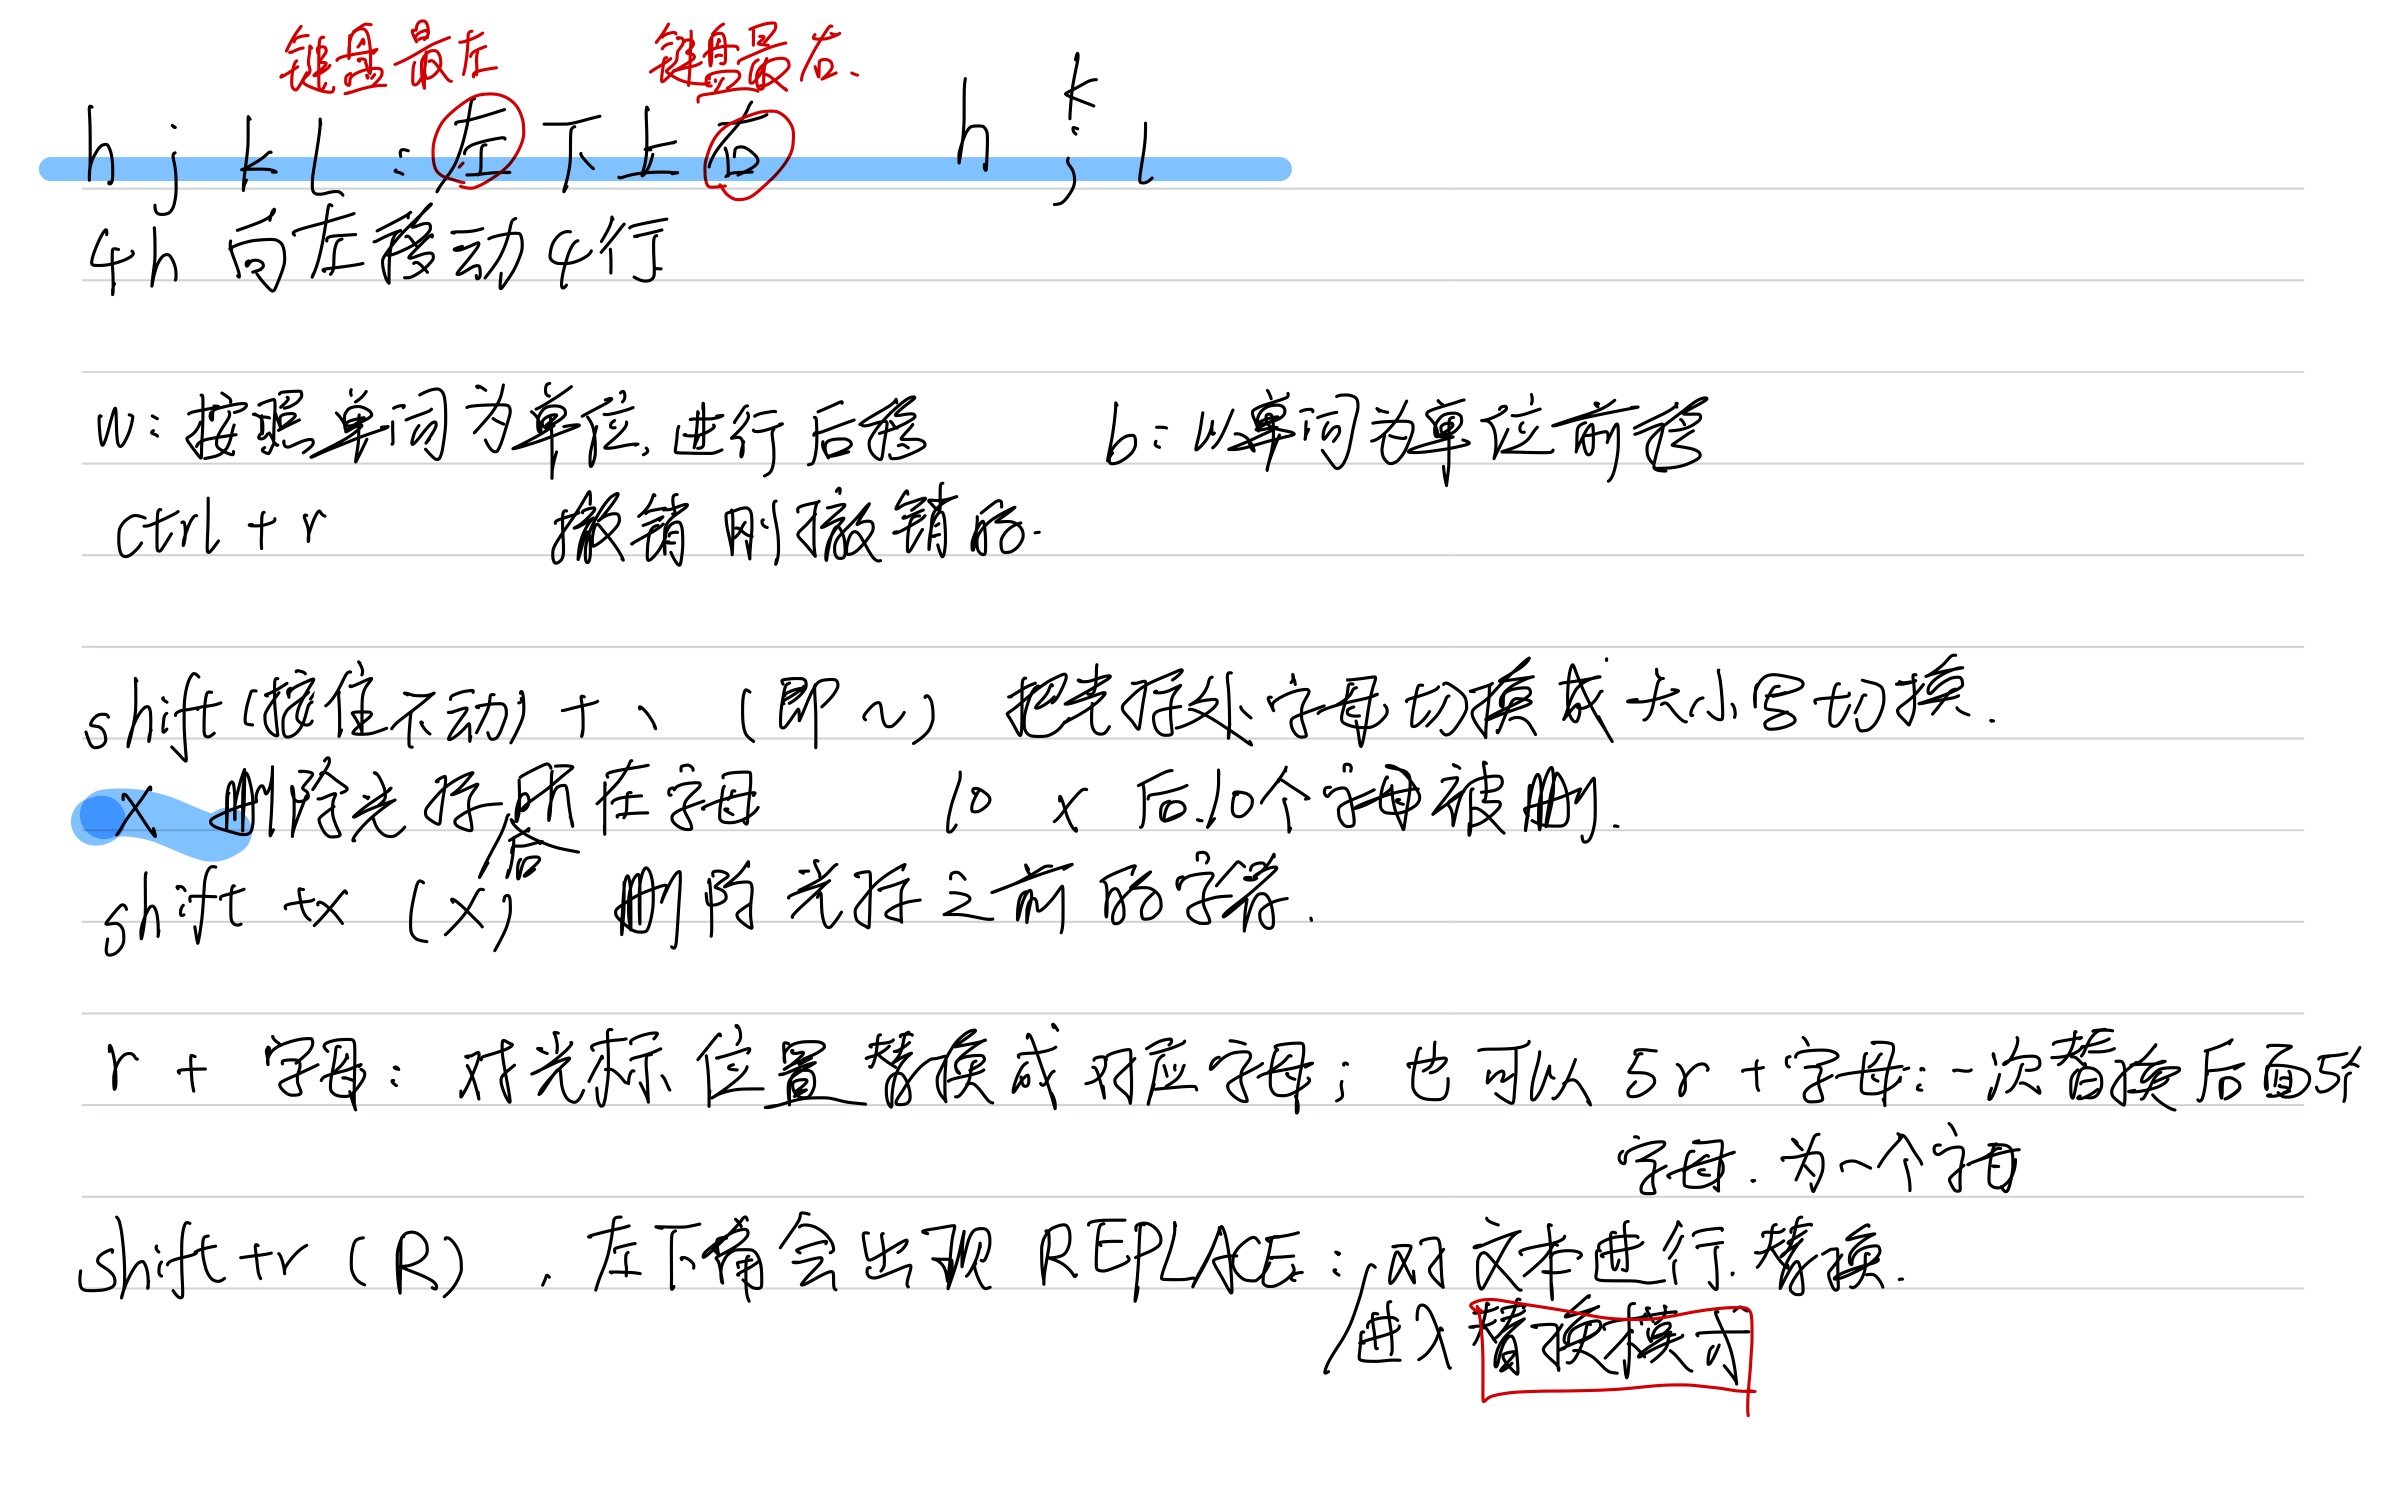 键盘最左 键盘最右.
h j k l : 左下上右 h j k l
4h 向左移动4行
w: 按照单词为单位, 进行后移 b: 以单词为单位前移
ctrl + r 撤销刚撤销的.
shift (按住不动) + 、 (即 ~) 把光标处字母切换成大小写切换.
x 删除光标所在字母 10 x 后10个字母被删.
shift +x (X) 删除光标之前的字符.
r + 字母: 对光标位置替换成对应字母; 也可以 5r + 字母: 一次替换后面5个
字母. 为一个字母
shift+r (R) . 左下角会出现 REPLACE: 对文本进行替换.
进入替换模式